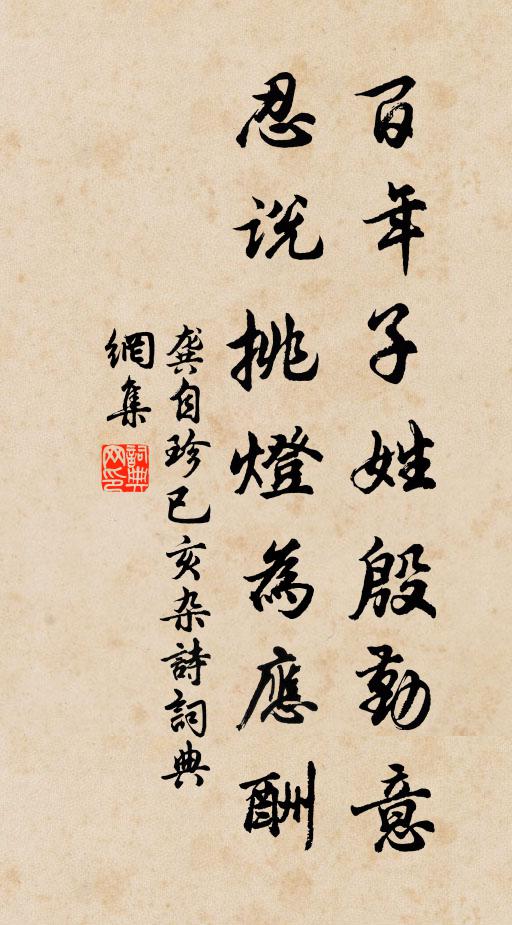 百年子姓殷勤意
忍說挑燈為應酬
龔自珍己亥杂詩詞典
網集
詞典網印